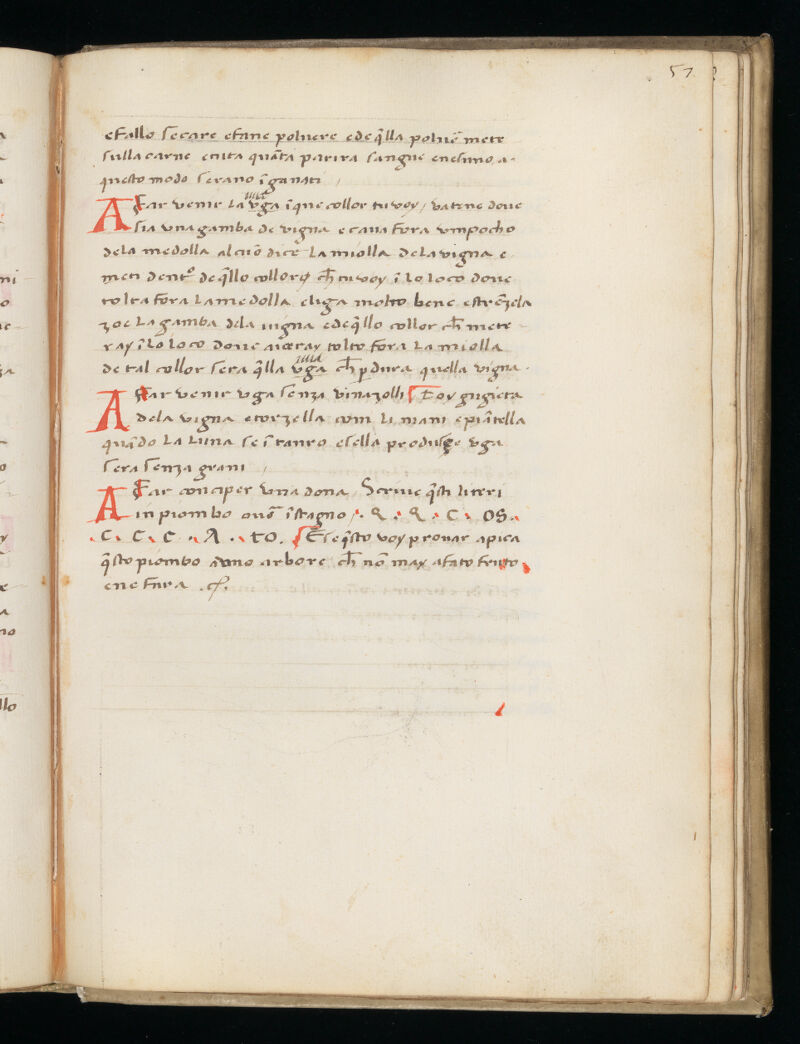 57
efallo secare efane poluere edeq̄lla poluē mete
sulla carne cruta quāta parira sangue enesuno a
questo modo serano īganati
A Far venir la vga ī que collor tu voy / vatene doue
sia vna gamba de vigna e caua fora vmpocho
dela medolla alcuō dice la miolla dela vigna e
meti dentº de q̄llo collore ch̄ tu voy ī lo loco doue
tolta fora la medolla eliga molto bene estrēzela
zoe la gamba dela uigna edeq̄llo collor ch̄ mete
ray ī lo loco doue aueray tolto fora la miolla
de tal collor sera q̄lla vga ch̄ ꝑdura quella vigna.
A Far venir vga senza vinazolli Toy gugieta
dela vigna etorzella com li mani epiātella
quādo la luna se ī tauro esella produsse vga
sera senza grani /
A Far conciper vna dona / Scriue q̄sti literi
in piombo ouō ī stagno . Q . Q . C . OS .
. C . C . C . A . . TO . E se q̄sto voy prouar apica
q̄sto piombo aduno arbore ch̄ nō may afato fruto
ene fara .